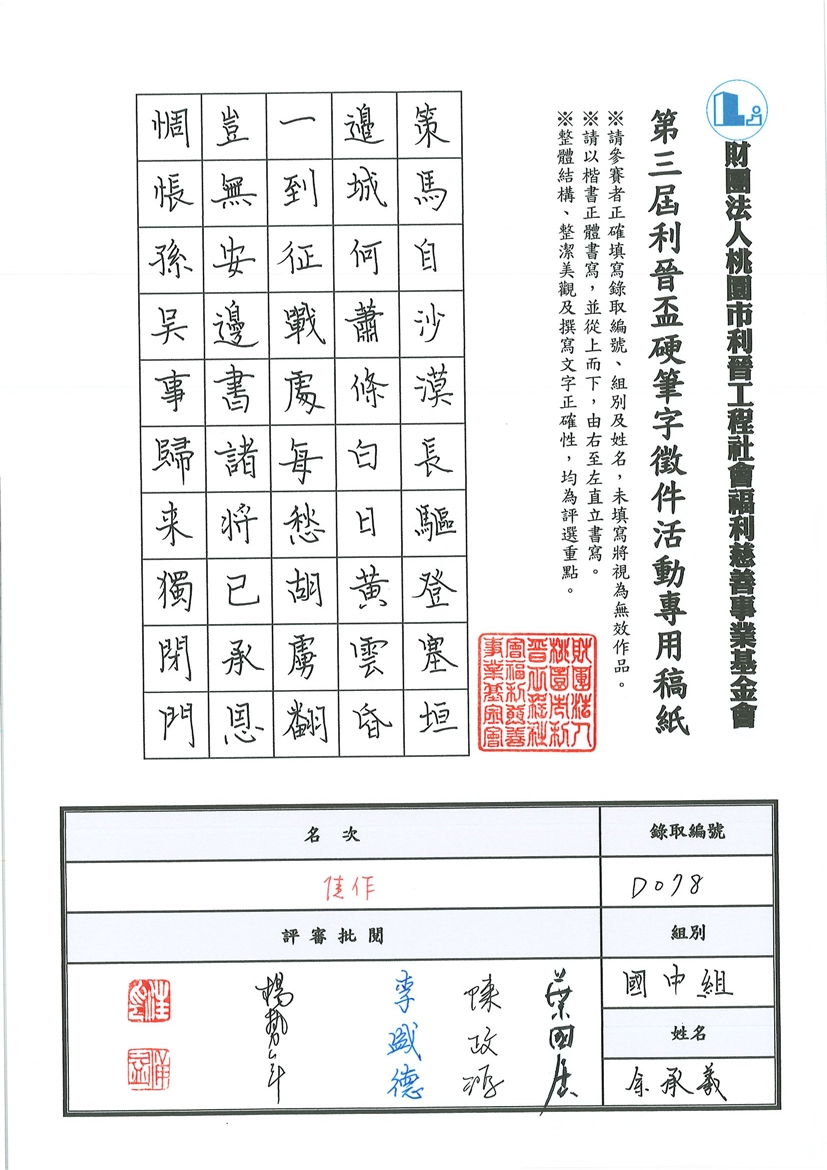 財團法人桃園市利晉工程社會福利慈善事業基金會
第三屆利晉盃硬筆字徵件活動專用稿紙
※請參賽者正確填寫錄取編號、組別及姓名，未填寫將視為無效作品。
※請以楷書正體書寫，並從上而下，由右至左直立書寫。
※整體結構、整潔美觀及撰寫文字正確性，均為評選重點。
策馬自沙漠長驅登塞垣
邊城何蕭條白日黃雲昏
一到征戰處每愁胡虜翻
豈無安邊書諸將已承恩
惆悵孫吳事歸来獨閉門
財團法人
桃園市利
晉工程社
會福利慈善
事業基金會
錄取編號
D078
組別
國中組
姓名
余承義
名次
佳作
評審批閱
葉國居
陳政
李盛德
楊